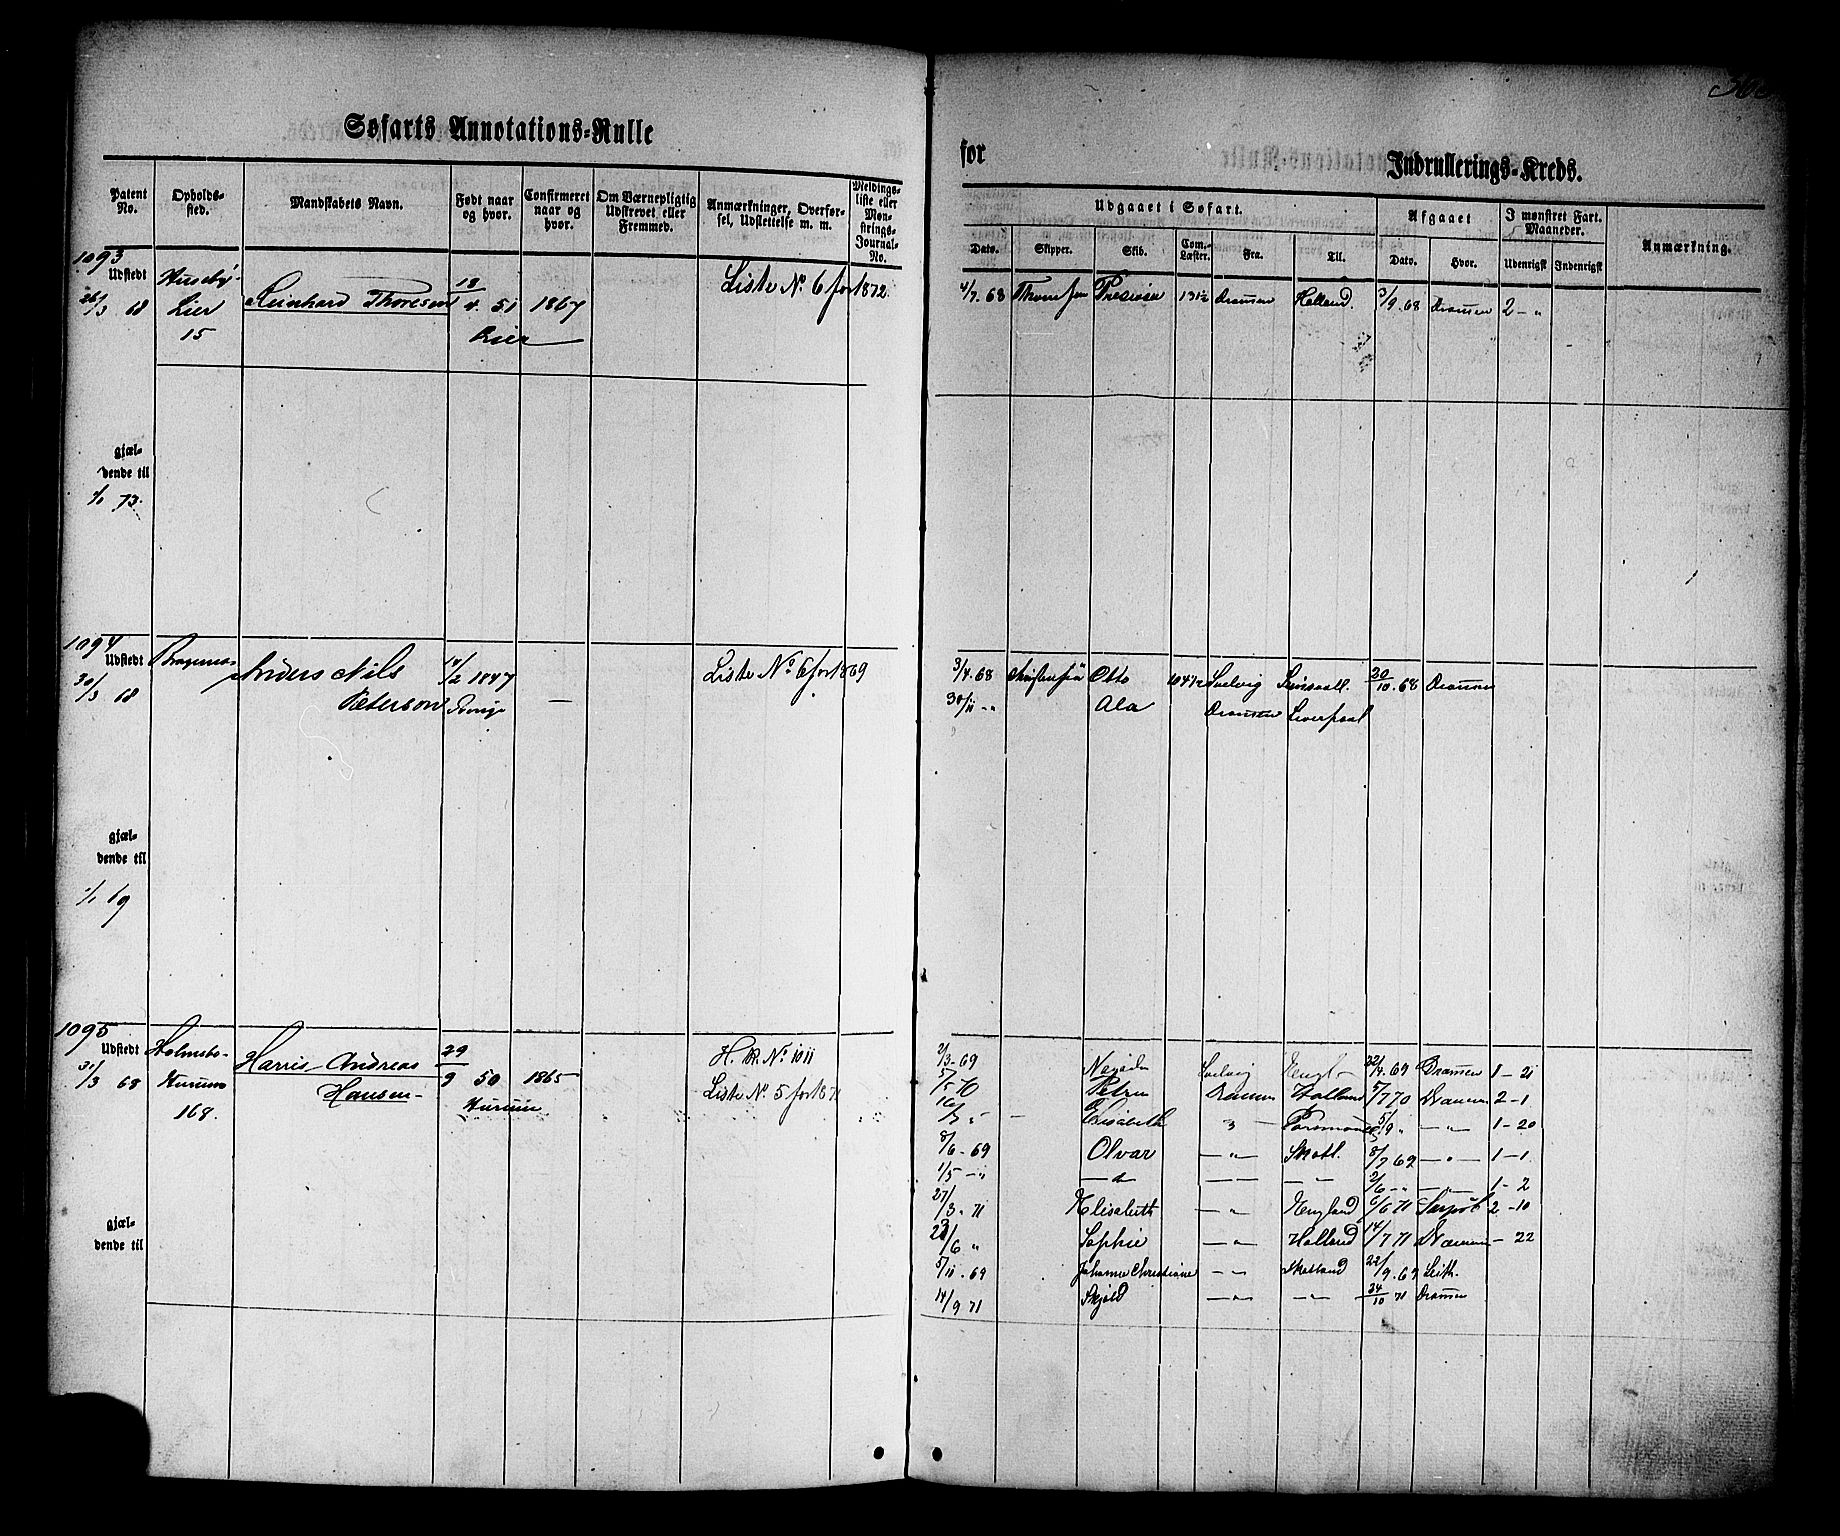 Søfarts Annotations-Rulle
for
Indrullerings-Kreds.
Patent No.
Opholds-sted.
Mandskabets Navn.
Født naar og hvor.
Confirmeret naar og hvor.
Om Værnepligtig Udskrevet eller Fremmed.
Anmærkninger, Overfør-sel, Udslettelse m. m.
Meldings-liste eller Mønstrings-Journal-No.
Udgaaet i Søfart.
Afgaaet
I mønstret Fart. Maaneder.
Anmærkning.
Dato.
Skipper.
Skib.
Com.-Læster.
Fra.
Til.
Dato.
Hvor.
Udenrigst
Indenrigst
1093
Udstedt
26/3 68
Lier
15
Reinhard Thoresen
18/4 51
Lier
1867
Liste No. 6 for 1872
4/7 68
131½
Dramen
Holland.
3/9 68
Dramen
2 - "
gjæl-
dende til
1/1 73.
1094
Udstedt
30/3 68
Bragernes
Anders Nils
Peterson
14/2 1847
—
Liste No. 6 for 1869
3/4 68
Otto
104½
Svelvig
20/10 68
Dramen
30/11 - "
Ala
Dramen
Liverpool
gjæl-
dende til
1/1 69
1095
Udstedt
31/3 68
Holmsbo-
Hurum
168.
Harris Andreas
Hansen-
29/9 50
Hurum
1865
H. R. No. 1011
Liste No. 5 for 1871
2/3 - 69
Svelvig
Engl -
22/4 69
Dramen
1 - 21
5/5 70
Petrea
Dramen
Holland
5/7 70
Dramen
2 - 1
Elisabeth
5/9 "
— " —
1 - 20
8/6 - 69
Olvar
— " —
Skotl.
8/7 69
— " —
1 - 1
1/5 - "
2/6 - "
1 - 2
27/3 - 71
Elisabeth
— " —
England
6/6 71
2 - 10
/6 "
Sophie
— " —
Holland
14/7 71
Dramen
- 22
5/11 - 69
Johanne Christiane
— " —
Skotland
22/9 - 69
Leith.
14/9 71
Skjold
— " —
— " —
24/10 71
Dramen
gjæl-
dende til